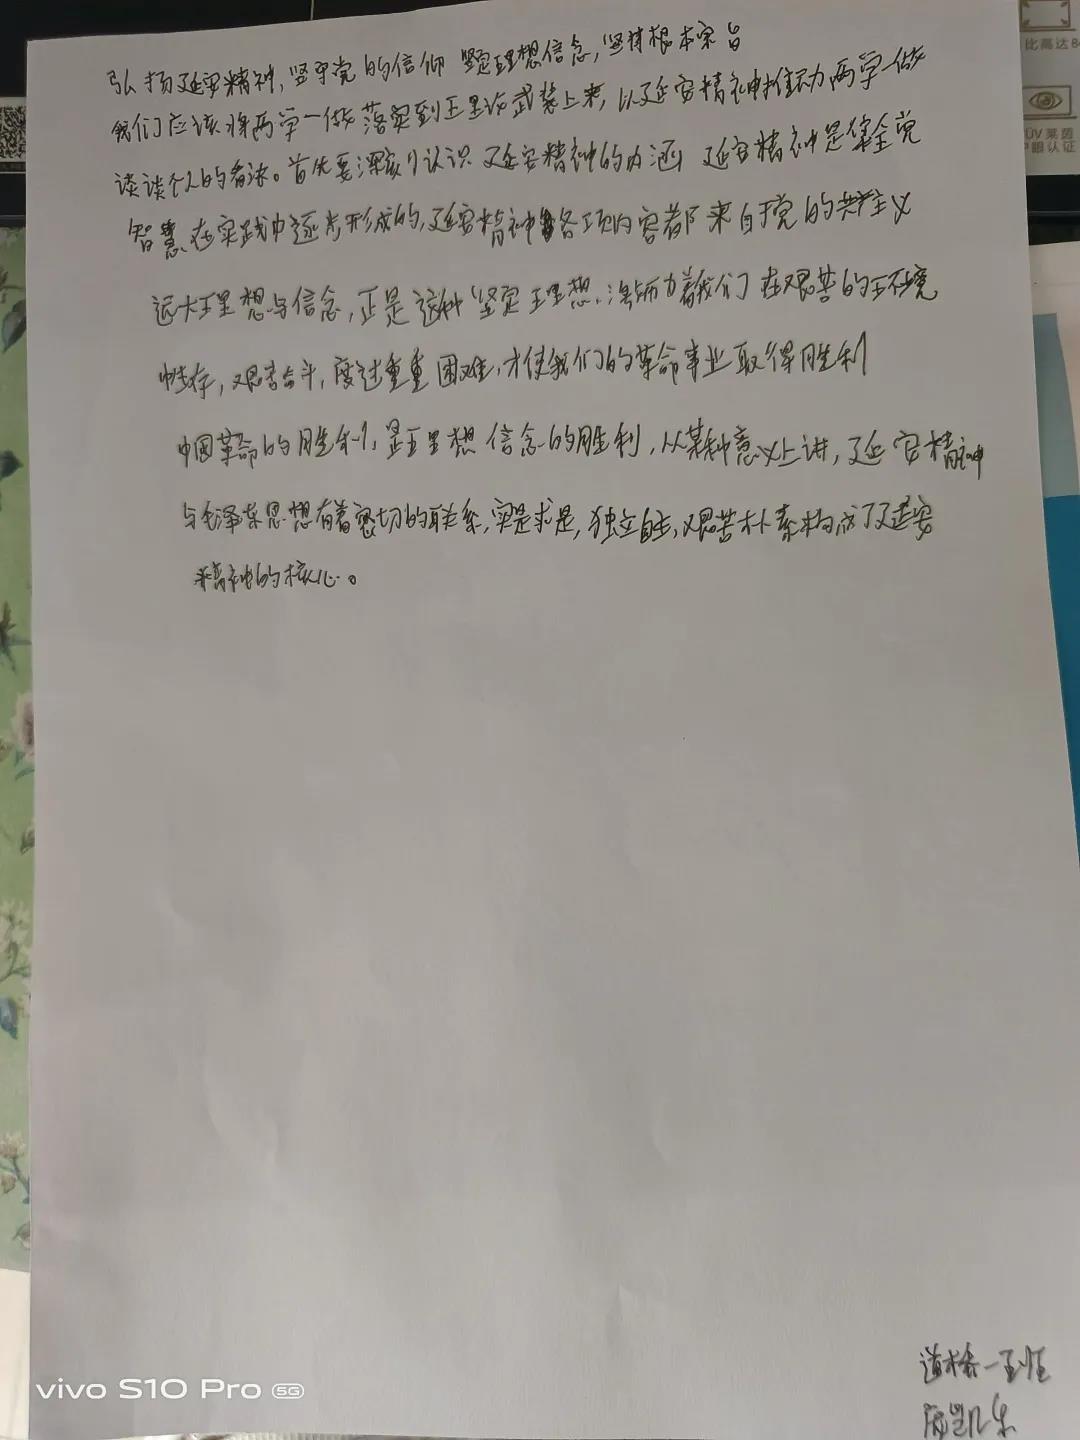 比高达8
ÜV莱茵
护眼认证
弘扬延安精神,坚守党的信仰 坚定理想信念,坚持根本宗旨
我们应该将两学一做落实到理论武装上来,以延安精神推动两学一做
谈谈个人的看法。首先要深刻认识 延安精神的内涵 延安精神是集全党
智慧,在实践中逐步形成的,延安精神各项内容都来自于党的共产主义
远大理想与信念,正是这种坚定理想,激励着我们在艰苦的环境
中生存,艰苦奋斗,度过重重困难,才使我们的革命事业取得胜利
中国革命的胜利,是理想信念的胜利,从某种意义上讲,延安精神
与毛泽东思想有着密切的联系,实是求是,独立自主,艰苦朴素构成了延安
精神的核心。
道桥一班
凯乐
vivo S10 Pro 5G